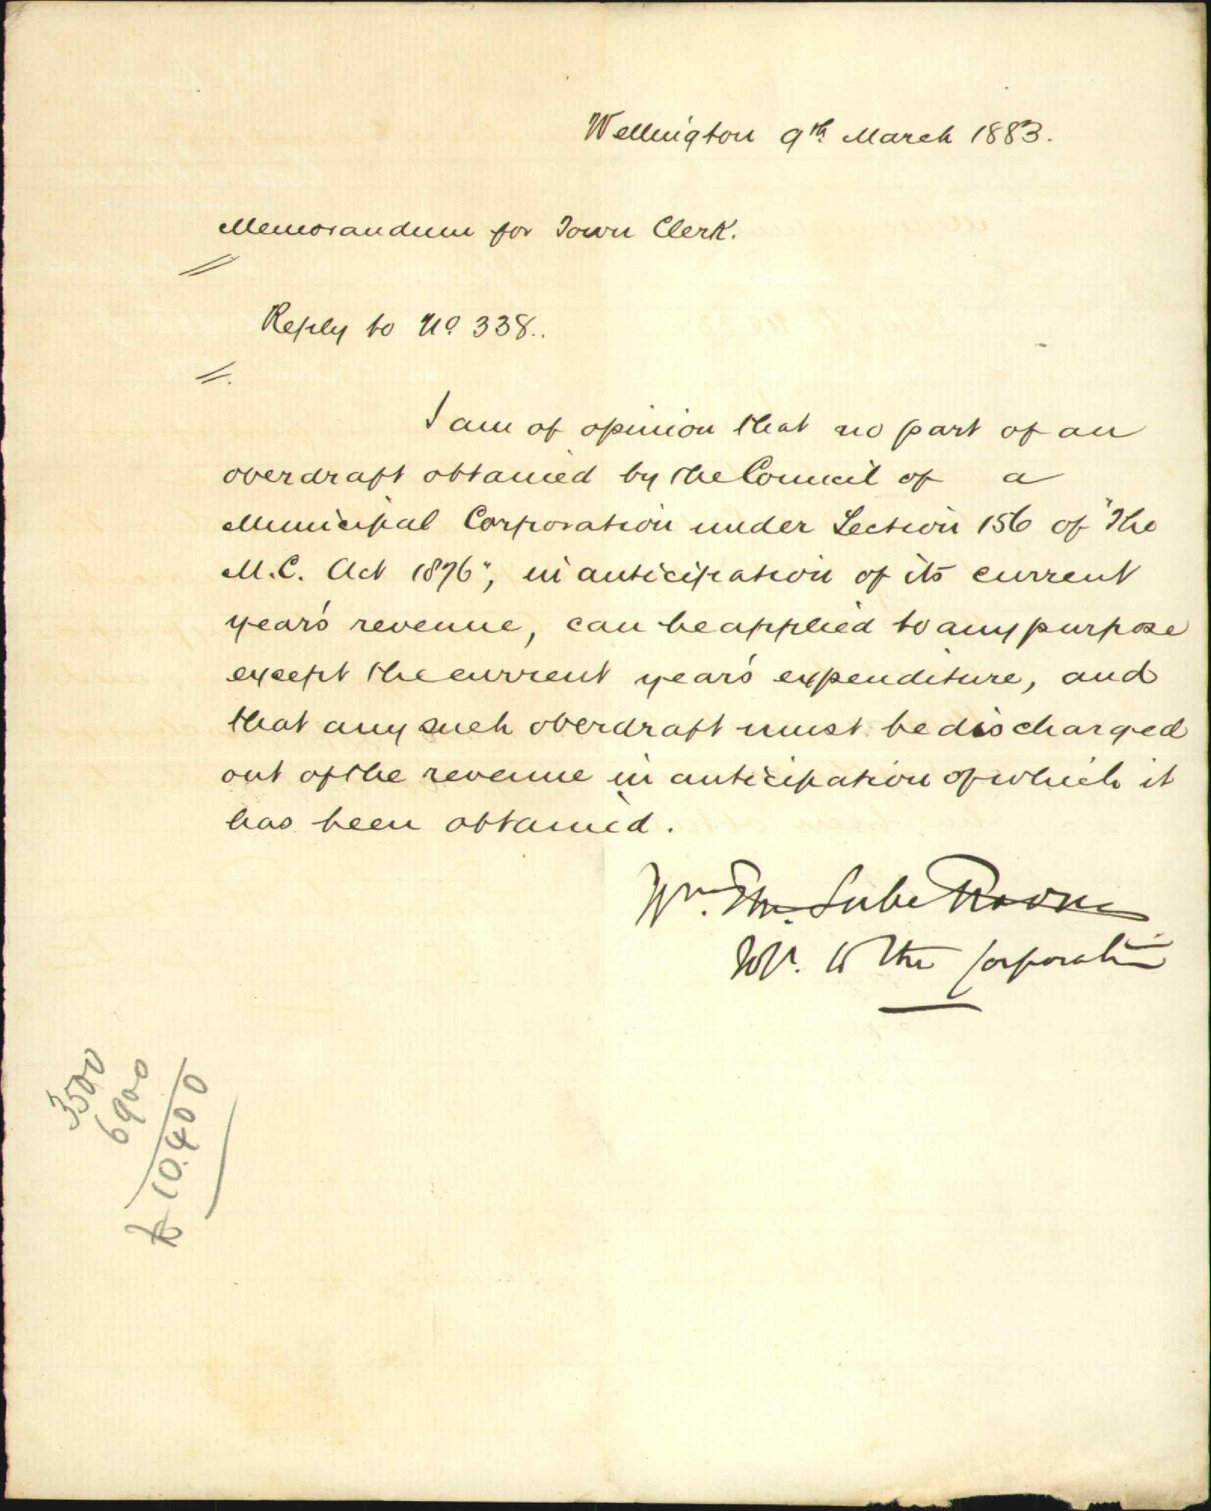 Wellington 9th March 1883.
Memorandum for Town Clerk.
Reply to No 338..
I am of opinion that no part of an
overdraft obtained by the Council of a
Municipal Corporation under Section 156 of "The
M.C. Act 1876", in anticipation of its current
year's revenue, can be applied to any purpose
except the current year's expenditure, and
that any such overdraft must be discharged
out of the revenue in anticipation of which it
has been obtained.
Wm.
to the Corporation
3500
6900
10.400